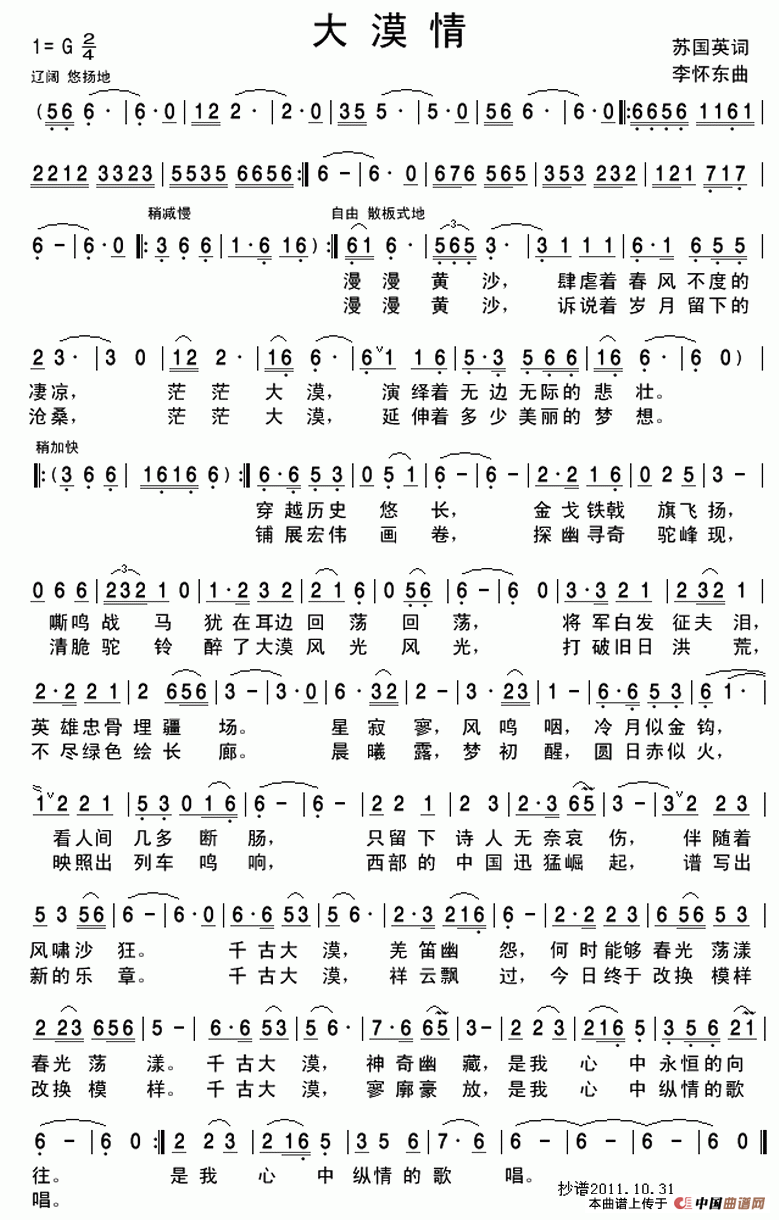 大漠情
1=G 2/4
苏国英词
辽阔 悠扬地
李怀东曲
(56 6· | 6·0 | 12 2· | 2·0 | 35 5· | 5·0 | 56 6· | 6·0 |: 6656 1161 |
2212 3323 | 5535 6656 :| 6 - | 6·0 | 676 565 | 353 232 | 121 717 |
稍减慢 自由 散板式地
6 - | 6·0 |: 3 6 6 | 1·6 16 ) :| 61 6· | 565 3· | 3 1 1 | 6·1 6 5 5 |
漫漫黄沙，肆虐着春风不度的
漫漫黄沙，诉说着岁月留下的
2 3· | 3 0 | 12 2· | 16 6· | 6 ∨ 1 1 6 | 5·3 5 6 6 | 16 6· | 6 0 ) |
凄凉，茫茫大漠，演绎着无边无际的悲壮。
沧桑，茫茫大漠，延伸着多少美丽的梦想。
稍加快
|: ( 3 6 6 | 1616 6 ) :| 6·6 5 3 | 0 5 1 | 6 - | 6 - | 2·2 1 6 | 0 2 5 | 3 - |
穿越历史悠长，金戈铁戟旗飞扬，
铺展宏伟画卷，探幽寻奇驼峰现，
0 6 6 | 232 1 0 | 1·2 3 2 | 2 1 6 | 0 56 | 6 - | 6 0 | 3·3 2 1 | 2 32 1 |
嘶鸣战马犹在耳边回荡回荡，将军白发征夫泪，
清脆驼铃醉了大漠风光风光，打破旧日洪荒，
2·2 2 1 | 2 656 | 3 - | 3·0 | 6·32 | 2· | 3·23 | 1 - | 6·6 5 3 | 6 1· |
英雄忠骨埋疆场。星寂寥，风鸣咽，冷月似金钩，
不尽绿色绘长廊。晨曦露，梦初醒，圆日赤似火，
1 ∨ 2 2 1 | 5 3 0 1 6 | 6 - | 6 - | 2 2 1 | 2 3 | 2·3 65 | 3 - | 3 ∨ 2 2 3 |
看人间几多断肠，只留下诗人无奈哀伤，伴随着
映照出列车鸣响，西部的中国迅猛崛起，谱写出
5 3 56 | 6 - | 6·0 | 6·6 53 | 5· | 2·3 216 | 6 - | 2·2 2 3 | 6 56 5 3 |
风啸沙狂。千古大漠，羌笛幽怨，何时能够春光荡漾
新的乐章。千古大漠，祥云飘过，今日终于改换模样
2 23 656 | 5 - | 6·6 53 | 5· | 7·6 65 | 3 - | 2 2 3 | 216 5 | 3 5 6 21 |
春光荡漾。千古大漠，神奇幽藏，是我心中永恒的向
改换模样。千古大漠，寥廓豪放，是我心中纵情的歌
6 - | 6 0 :| 2 2 3 | 2 16 5 | 3 5 6 | 7·6 | 6 - | 6 - | 6 - | 6 0 |
往。是我心中纵情的歌唱。
唱。
抄谱2011.10.31
本曲谱上传于 中国曲谱网